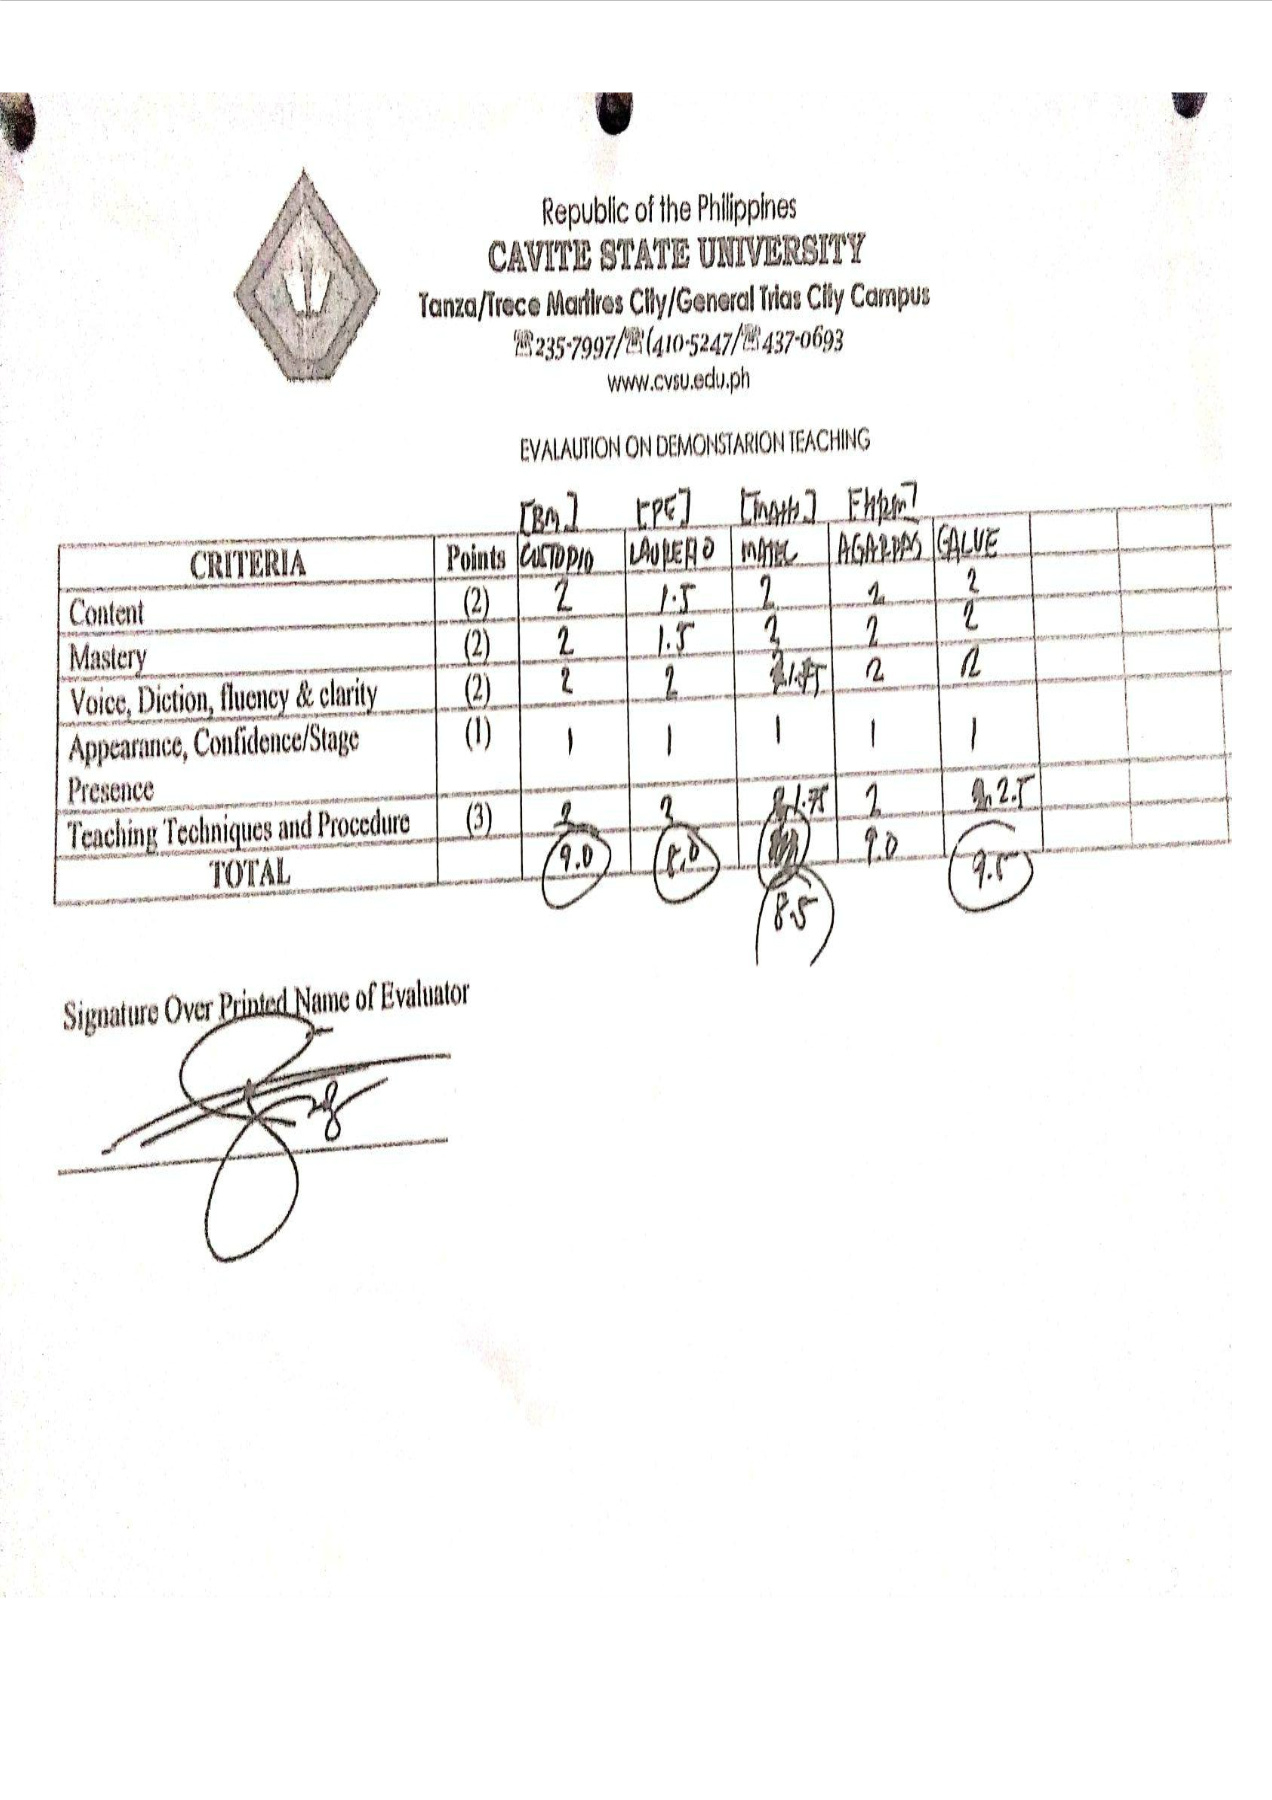 Republic of the Philippines
CAVITE STATE UNIVERSITY
Tanza/Trece Martires City/General Trias City Campus
☏235-7997/☏(410-5247/☏437-0693
www.cvsu.edu.ph
EVALAUTION ON DEMONSTARION TEACHING
[BM] [PE] [MATH]
CRITERIA Points CUSTODIO GALUE
Content (2) 2 1.5 2 2 2
Mastery (2) 2 1.5 2 2 2
Voice, Diction, fluency & clarity (2) 2 2 1.75 2 2
Appearance, Confidence/Stage Presence (1) 1 1 1 1 1
Teaching Techniques and Procedure (3) 2 2 1.75 2 2.5
TOTAL 9.0 8.0 9.0 9.5
8.5
Signature Over Printed Name of Evaluator